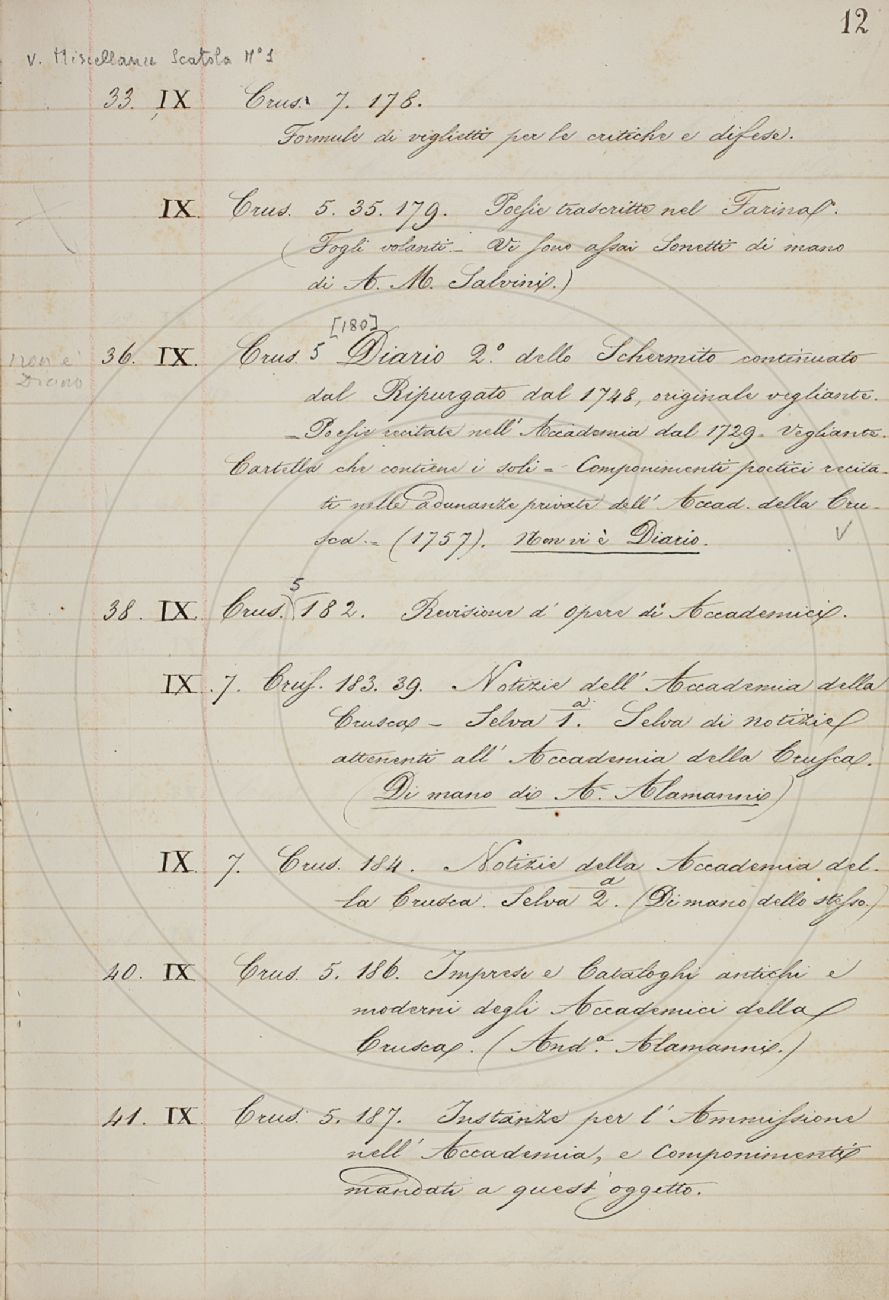 12
V. Miscellanee Scatola N° 1
33. IX Crus. 7. 178.
Formule di viglietti per le critiche e difese.
IX. Crus. 5. 35. 179. Poesie trascritte nel Farina.
(Fogli volanti - Vi sono assai Sonetti di mano
di A. M. Salvini.)
[180]
non è 36. IX. Crus. 5 Diario 2.° dello Schermito continuato
Diario dal Ripurgato dal 1748, originale vegliante.
- Poesie recitate nell' Accademia dal 1729. Vegliante.
Cartella che contiene i soli = Componimenti poetici recita-
ti nelle adunanze private dell' Accad. della Cru-
sca. = (1757). Non vi è Diario. V
5
38. IX. Crus. 182. Revisione d' Opere di Accademici.
IX. 7. Crus. 183. 39. Notizie dell' Accademia della
Crusca - Selva 1.a Selva di notizie
attenenti all' Accademia della Crusca.
(Di mano di A. Alamanni)
IX. 7. Crus. 184. Notizie della Accademia del-
la Crusca. Selva 2.a (Di mano dello stesso.)
40. IX Crus. 5. 186. Imprese e Cataloghi antichi e
moderni degli Accademici della
Crusca. (And.a Alamanni.)
41. IX. Crus. 5. 187. Instanze per l' Ammissione
nell' Accademia, e Componimenti
mandati a quest' oggetto.